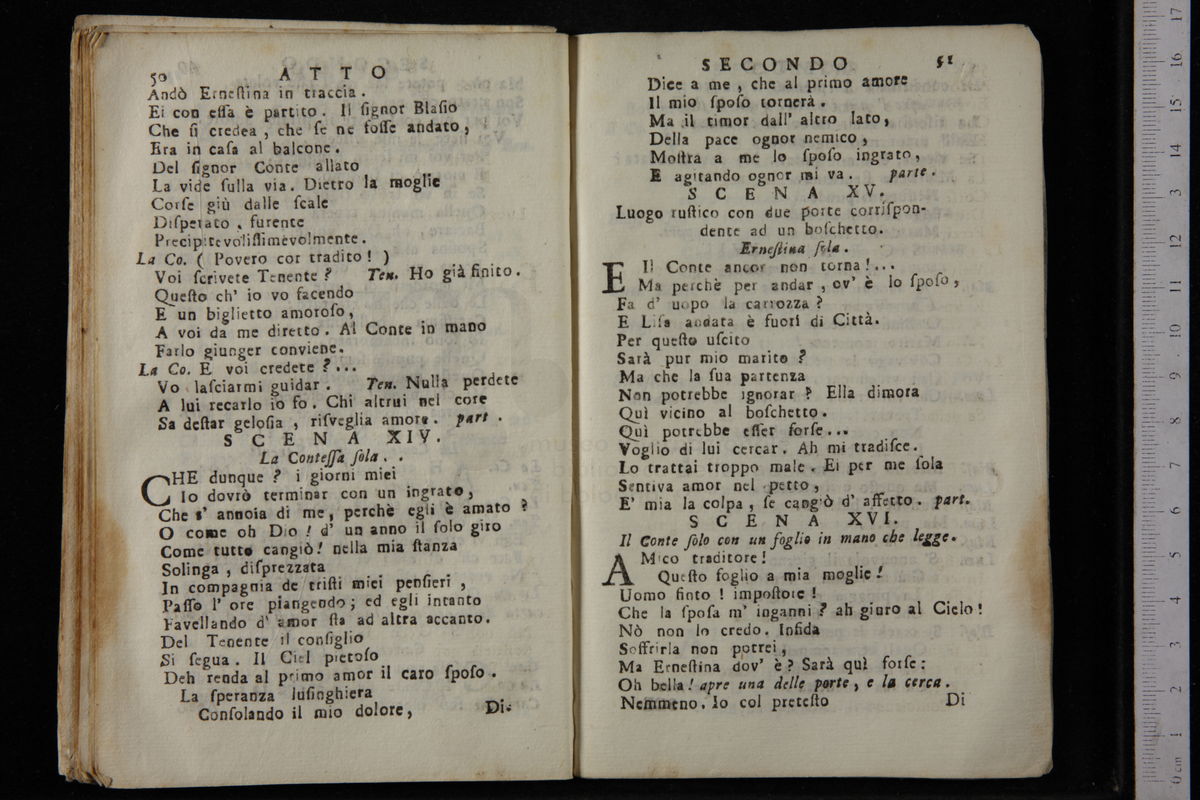 50 ATTO
Andò Erneſtina in traccia.
Ei con eſſa è partito. Il ſignor Blaſio
Che ſi credea, che ſe ne foſſe andato,
Era in caſa al balcone.
Del ſignor Conte allato
La vide ſulla via. Dietro la moglie
Corſe giù dalle ſcale
Diſperato, furente
Precipitevoliſſimevolmente.
La Co. ( Povero cor tradito! )
Voi ſcrivete Tenente? Ten. Ho già finito.
Queſto ch' io vo facendo
E un biglietto amoroſo,
A voi da me diretto. Al Conte in mano
Farlo giunger conviene.
La Co. E voi credete?...
Vo laſciarmi guidar. Ten. Nulla perdete
A lui recarlo io fo. Chi altrui nel core
Sa deſtar geloſia, riſveglia amore. part.
SCENA XIV.
La Conteſſa ſola.
CHE dunque? i giorni miei
Io dovrò terminar con un ingrato,
Che s' annoia di me, perchè egli è amato?
O come oh Dio! d' un anno il ſolo giro
Come tutto cangiò! nella mia ſtanza
Solinga, diſprezzata
In compagnia de' triſti miei penſieri,
Paſſo l' ore piangendo; ed egli intanto
Favellando d' amor ſta ad altra accanto.
Del Tenente il conſiglio
Si ſegua. Il Ciel pietoſo
Deh renda al primo amor il caro ſpoſo.
La ſperanza luſinghiera
Conſolando il mio dolore,
Di-
SECONDO 51
Dice a me, che al primo amore
Il mio ſpoſo tornerà.
Ma il timor dall' altro lato,
Della pace ognor nemico,
Moſtra a me lo ſpoſo ingrato,
E agitando ognor mi va. parte.
SCENA XV.
Luogo ruſtico con due porte corriſpon-
dente ad un boſchetto.
Erneſtina ſola.
E Il Conte ancor non torna!...
Ma perchè per andar, ov' è lo ſpoſo,
Fa d' uopo la carrozza?
E Liſa andata è fuori di Città.
Per queſto uſcito
Sarà pur mio marito?
Ma che la ſua partenza
Non potrebbe ignorar? Ella dimora
Quì vicino al boſchetto.
Quì potrebbe eſſer forſe...
Voglio di lui cercar. Ah mi tradiſce.
Lo trattai troppo male. Ei per me ſola
Sentiva amor nel petto,
E' mia la colpa, ſe cangiò d' affetto. part.
SCENA XVI.
Il Conte ſolo con un foglio in mano che legge.
AMico traditore!
Queſto foglio a mia moglie!
Uomo finto! impoſtore!
Che la ſpoſa m' inganni? ah giuro al Cielo!
Nò non lo credo. Infida
Soffrirla non potrei,
Ma Erneſtina dov' è? Sarà quì forſe:
Oh bella! apre una delle porte, e la cerca.
Nemmeno. Io col preteſto
Di